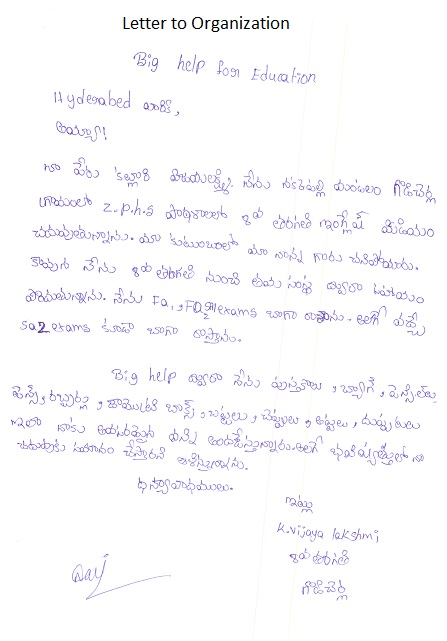 Letter to Organization
Big help for Education
Hyderabed వారికి,
అయ్యా!
నా పేరు కల్లూరి విజయలక్ష్మి. నేను నక్కపల్లి మండలం గొడిచెర్ల
గ్రామంలో Z.p.h.s పాఠశాలలో 8వ తరగతి ఇంగ్లీష్ మీడియం
చదువుతున్నాను. మా కుటుంబంలో మా నాన్న గారు చనిపోయారు.
కావున నేను 8వ తరగతి నుంచి తమ సంస్థ ద్వారా సహాయం
పొందుతున్నాను. నేను Fa1, FA2 exams బాగా రాసాను. అలాగే వచ్చే
sa2 exams కూడా బాగా రాస్తాను.
Big help ద్వారా నేను పుస్తకాలు, బ్యాగ్, పెన్సిల్లు,
పెన్స్, రబ్బర్లు, జామెట్రీ బాక్స్, బట్టలు, చెప్పులు, అట్టలు, దుప్పటులు
ఇలా నాకు అవసరమైనవన్నీ అందజేస్తున్నారు. అలాగే భవిష్యత్తులో నా
చదువుకు సహకారం చేస్తారని ఆశిస్తున్నాను.
ధన్యావాదములు.
ఇట్లు
K.vijaya lakshmi
8వ తరగతి
గొడిచెర్ల